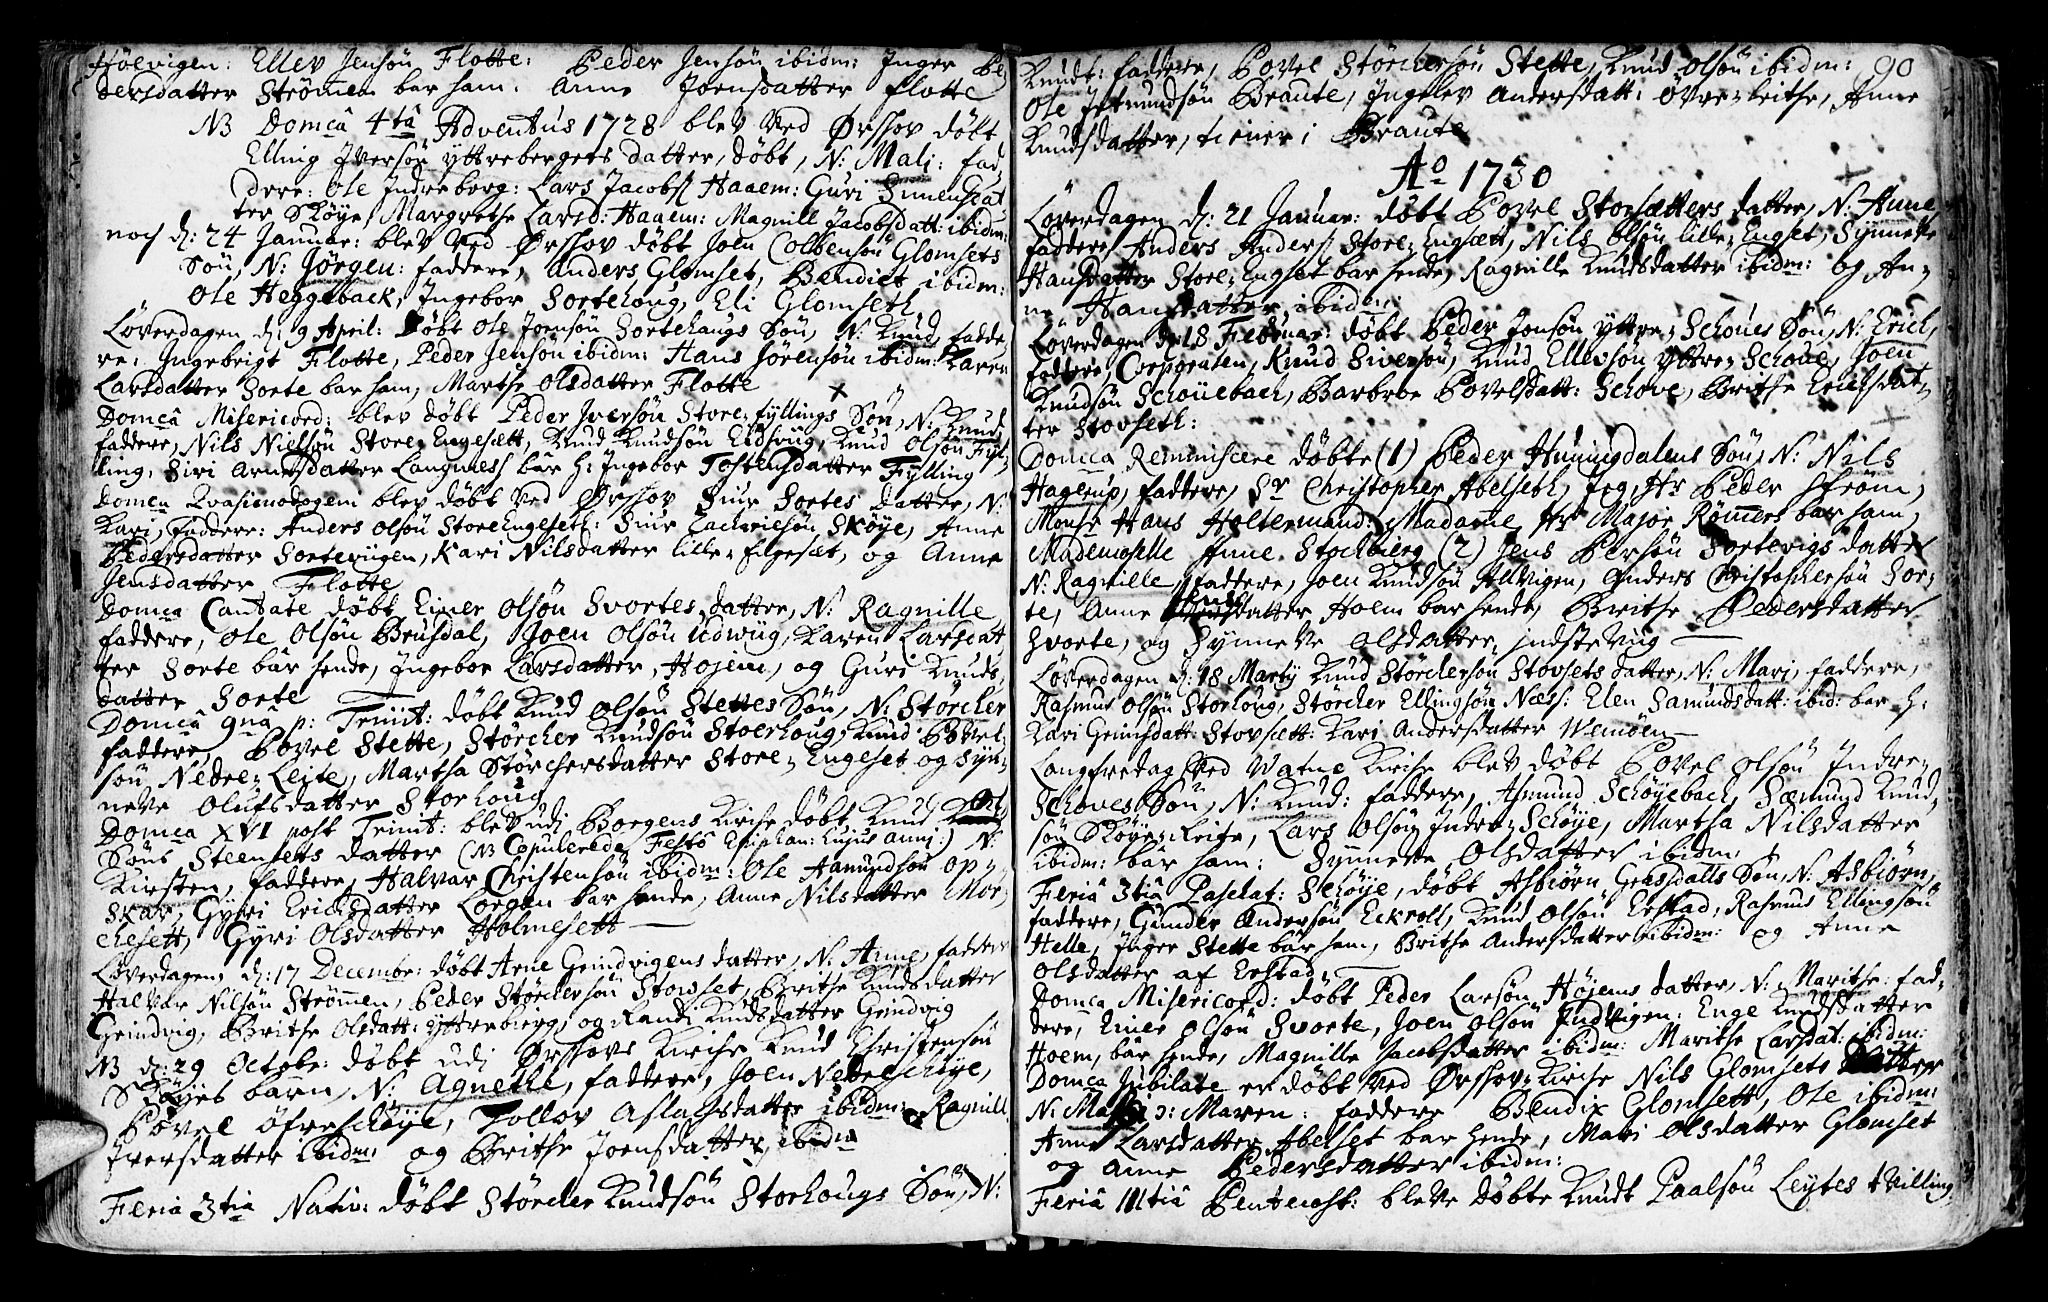 Höevigen: Ellev Jensön Flotte: Peder Jensön ibidm: Inger Pe
dersdatter Strömen bar ham: Anne Joensdatter Flotte
NB Domcâ 4tâ Adventus 1728 blev ved Ørschov döbt
Elling Iversön yttrebergets datter, döbt, N: Mali: fad,
dere: Ole Indreberg: Lars Jacobs: Haaem: Guri Simensdat
ter Sköye, Margrethe Larsd: Haaem: Magnill Jacobsdatt: ibidm:
noch d: 24 Januar: blev ved Ørschov döbt Joen Colbensön Glomsets
Sön, N: Jörgen: faddere, Anders Glomset, Bendict ibidm:
Ole Heggeback, Ingebor Sortehoug, Eli Glomseth,
Löverdagen d: 9 April: döbt Ole Joensön Sortehaugs Sön, N: Knud, fadde
re: Ingebrigt Flotte, Peder Jensön ibidm: Hans Sörensön ibidm: Karen
Larsdatter Sorte bar ham, Marthe Olsdatter Flotte
Domcâ Misericord: blev döbt Peder Iversön Store-Fyllings Sön, N: Knud
faddere, Nils Nielsön Store Engesætt, Knud Knudsön Eidsvig, Knud Olsön Fyl-
ling, Siri Arnesdatter Langness bar h: Ingebor Tostensdatter Fylling
Domca Qvasimodogeni blev döbt ved Ørschov Siur Sortes datter, N:
Kari, faddere: Anders Olsön Store Engeseth: Siur Zachriesön Sköye, Anne
Pedersdatter Sortevigen, Kari Nilsdatter lille-Engeset, og Anne
Jensdatter Flotte
Domca Cantate döbt Einer Olsön Svortes datter, N: Ragnille
faddere, Ole Olsön Brusdal, Joen Olsön Udwiig, Karen Larsdat
ter Sorte bar hende, Ingebor Larsdatter, Hojem, og Guri Knuds,
datter Sorte
Domcâ 9nâ p: Trinit: döbt Knud Olsön Stettes Sön, N: Störcher
faddere, Povel Stette, Störcher Knudsön Stoerhoug, Knud Povel-
sön Nedre-Leite, Martha Störchersdatter Store-Engeset og Syn-
neve Olufsdatter Storhoug
Domca XVI post Trinit: blev udj Borgens Kirche döbt Knud Ol
Söns Steensets datter (NB Copulerede Festo Epiphan: hujus anni:) N:
Kirsten, faddere, Halvar Christensön ibidm: Ole Hamundsön op-
skar, Gyri Erichsdatter Lorgen bar hende, Anne Nilsdatter Mor,
chesett, Gyri Olsdatter Holmesett
Löverdagen d: 17 Decembr: döbt Arne Grindvigens datter, N: Anne, fadder
Halvar Nilsön Strömen, Peder Störchersön Stovset, Brithe Knudsdatter
Grindvig, Brithe Olsdatt: yttrebierg, og Randi Knudsdatter Grindvig
NB d: 29 Octobr: döbt udj Ørschovs Kirche Knud Christensön
Sköyes barn, N: Agnethe, faddere, Joen Nedreschöye,
Povel öfreschöye, Tollov Aslachsdatter ibidm: Ragnill
Iversdatter ibidm: og Brithe Joensdatter, ibidm
Feria 3tia Nativ: döbt Störcher Knudsön Storhougs Sön, N:
90
Knudt: faddere, Povel Störchersön Stette, Knud Olsön ibidm:
Ole Jetmundsön Braute, Ingelev Andersdatt: Övre-Leithe, Anne
Knudsdatter, tiener i Braute
Ao 1730
Löverdagen d: 21 Januar: döbt Povel Stovsætters datter, N: Anne
faddere, Anders Anders: Store-Engsætt, Nils Olsön lille-Engset, Synneve
Hansdatter Store-Engset bar hende, Ragnille Knudsdatter ibidm: og An-
ne Hansdatter, ibidm:
Löverdagen d: 18 Februar: döbt Peder Jonsön Yttre-Schoues Sön, N: Erich,
faddere, Corporalen, Knud Siversön, Knud Ellevsön yttre-Schoue, Joen
Knudsön Schouebach, Barbroe Povelsdatt: Schove, Brithe Erichsdat-
ter Stovseth:
Domca Reminiscere döbte (1) Peder Huningdalens Sön, N: Nils
Hagerup, faddere, Sr Christopher Abelseth, Jeg, Hr Peder Ström,
Monsr Hans Holtermand: Madame Hr Major Römers bar ham,
Mademoselle Anne Stochbierg (2) Jens Persön Sortevigs datter
N: Ragnille, faddere, Joen Knudsön Allvigen, Anders Christophersön Sor-
te, Anne datter Hoem bar hende, Brithe Pedersdatter
Svorte, og Synneve Olsdatter Indstevug
Löverdagen d: 18 Martÿ Knud Störchersön Stovsets datter, N: Mari, faddere,
Rasmus Olsön Storhoug, Störcher Ellingsön Næss: Elen Samundsdatt: ibid: bar h:
Kari Grimsdatt: Stovsætt: Kari Andersdatter Wemöen
Langfredag ved Watne Kirche blev döbt Povel Olsön Indre-
Schoves Sön, N: Knud: faddere, Asmund Schöyebach, Sæmund Knud,
sön Sköye-Leite, Lars Olsön Indre-Schöye, Martha Nilsdatter
ibidm: bar ham: Synneve Olsdatter ibidm:
Feriâ 3tiâ Paschat: Schöye, döbt Asbiörn Grasdalls Sön, N: Asbiörn,
faddere, Gunder Andersön Eckroll, Knud Olsön Erstad, Rasmus Ellingsön
Helle, Inger Stette bar ham, Brithe Andersdatter ibidm: og Anne
Olsdatter af Erstad
Domca Misericord: döbt Peder Larsön Höjems datter, N: Marithe: fad-
dere, Einer Olsön Svorte, Joen Olsön Indvigen: Enge Knudsdatter
Hoem, bar hende, Magnille Jacobsdatter ibidm: Marithe Larsdat: ibidm:
Domca Jubilate er döbt ved Ørschov-Kirche Nils Glomsets datter
N: ɔ: Maren: faddere Bendix Glomsett, Ole ibidm:
Anne Larsdatter Abelset bar hende, Mari Olsdatter Glomset
og Anne Pedersdatter ibidm:
Feriâ IIItiâ Pentecost: bleve döbte Knudt Paalsön Leytes tvilling,